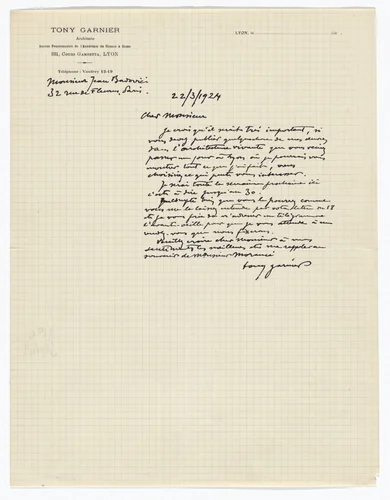 TONY GARNIER
Architecte
Ancien Pensionnaire de l'Académie de France à Rome
331, Cours Gambetta, LYON
Téléphone : Vaudrey 12-19
LYON, le
Monsieur Jean Badovici
32 rue de Fleurus, Paris.
22/3/1924
Cher Monsieur
Je crois qu'il serait très important, si
vous devez publier quelqu'une de mes œuvres
dans l'architecture vivante que vous veniez
passer un jour à Lyon où je pourrais vous
montrer tout ce que j'ai fait, vous
choisiriez ce qui peut vous intéresser.
Je serai toute la semaine prochaine ici
c'est à dire jusqu'au 30.
que vous le pourrez comme
vous me le laissez entendre par votre lettre du 18
et je vous prie de m'adresser un télégramme
l'avant-veille pour que je vous attende à un
rendez-vous que nous fixerons.
Veuillez croire cher Monsieur à mes
sentiments les meilleurs et me rappeler au
souvenir de Monsieur Morancé
tony garnier